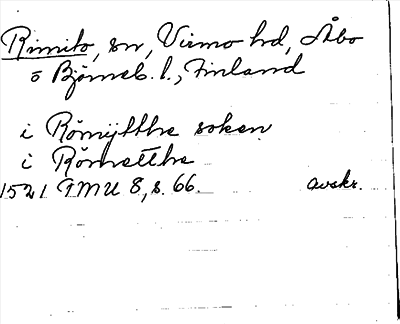 Rimito, sn, Virmo hd, Åbo
o Björneb. l., Finland
i Römÿtthe soken
i Römetthe
1521 FMU 8, s. 66. avskr.